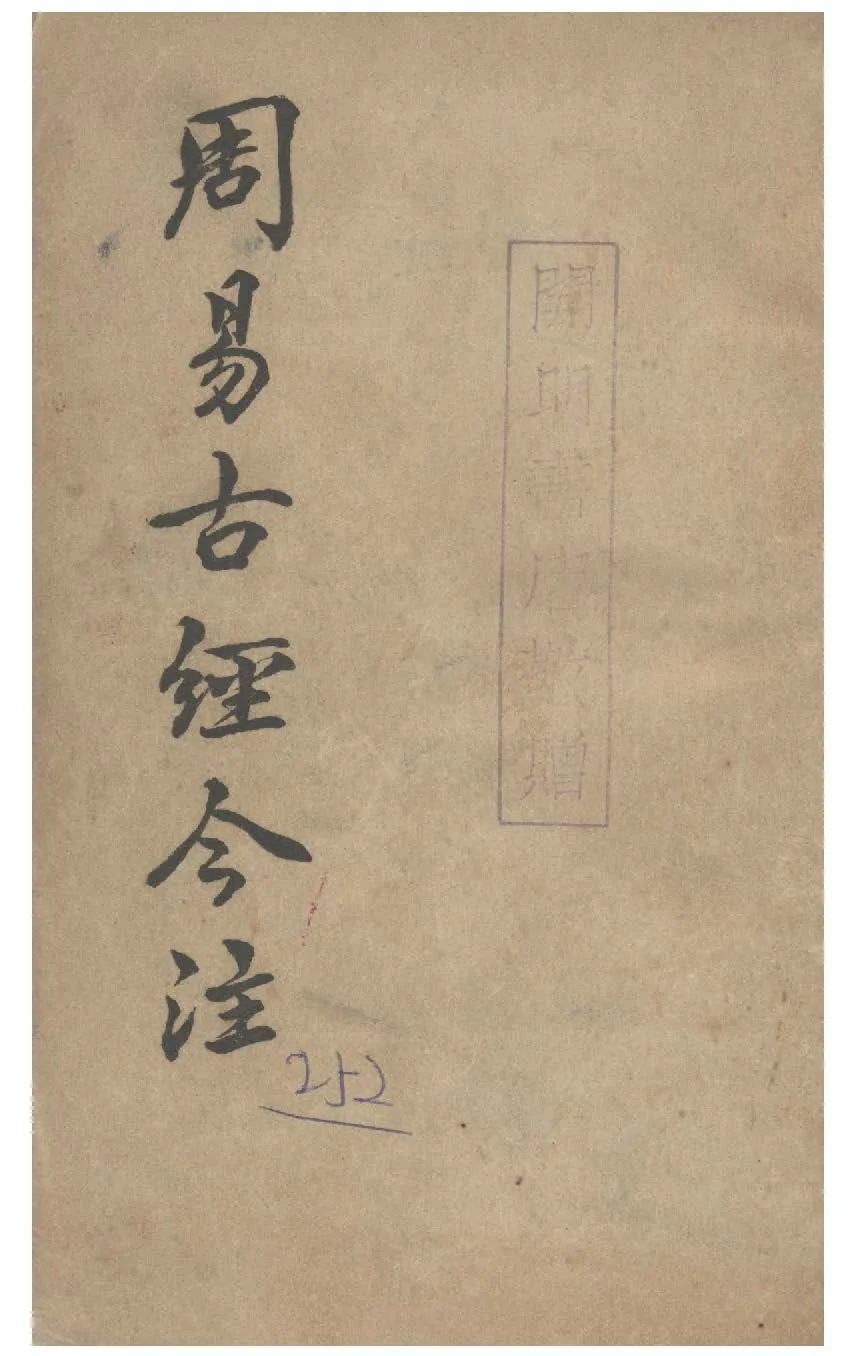 周易古經今注
開明書店敬贈
252